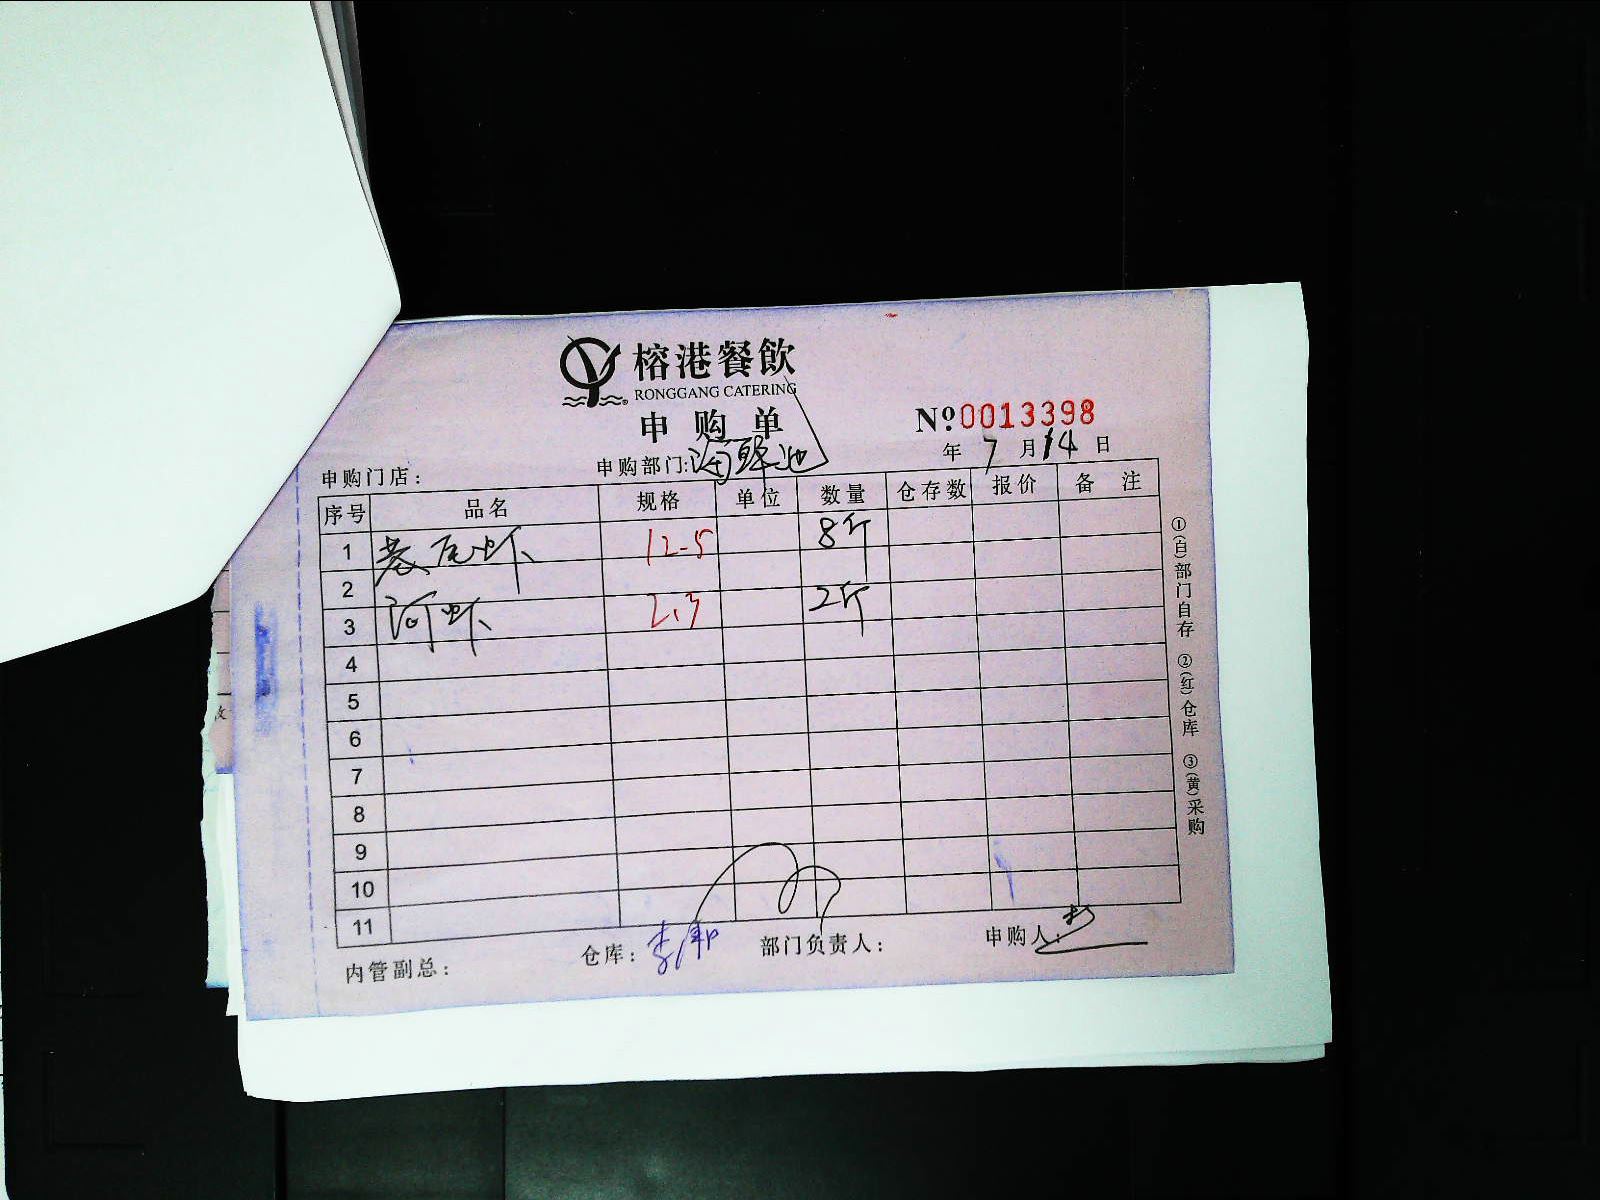 榕港餐飲
RONGGANG CATERING
申购单
№0013398
年 7 月 14 日
申购门店: 申购部门: 海鲜池
序号 品名 规格 单位 数量 仓存数 报价 备注
1 尾虾 12-5 8斤
2
3 河虾 2.3 2斤
4
5
6
7
8
9
10
11
内管副总: 仓库: 部门负责人: 申购人:
①(白)部门自存 ②(红)仓库 ③(黄)采购